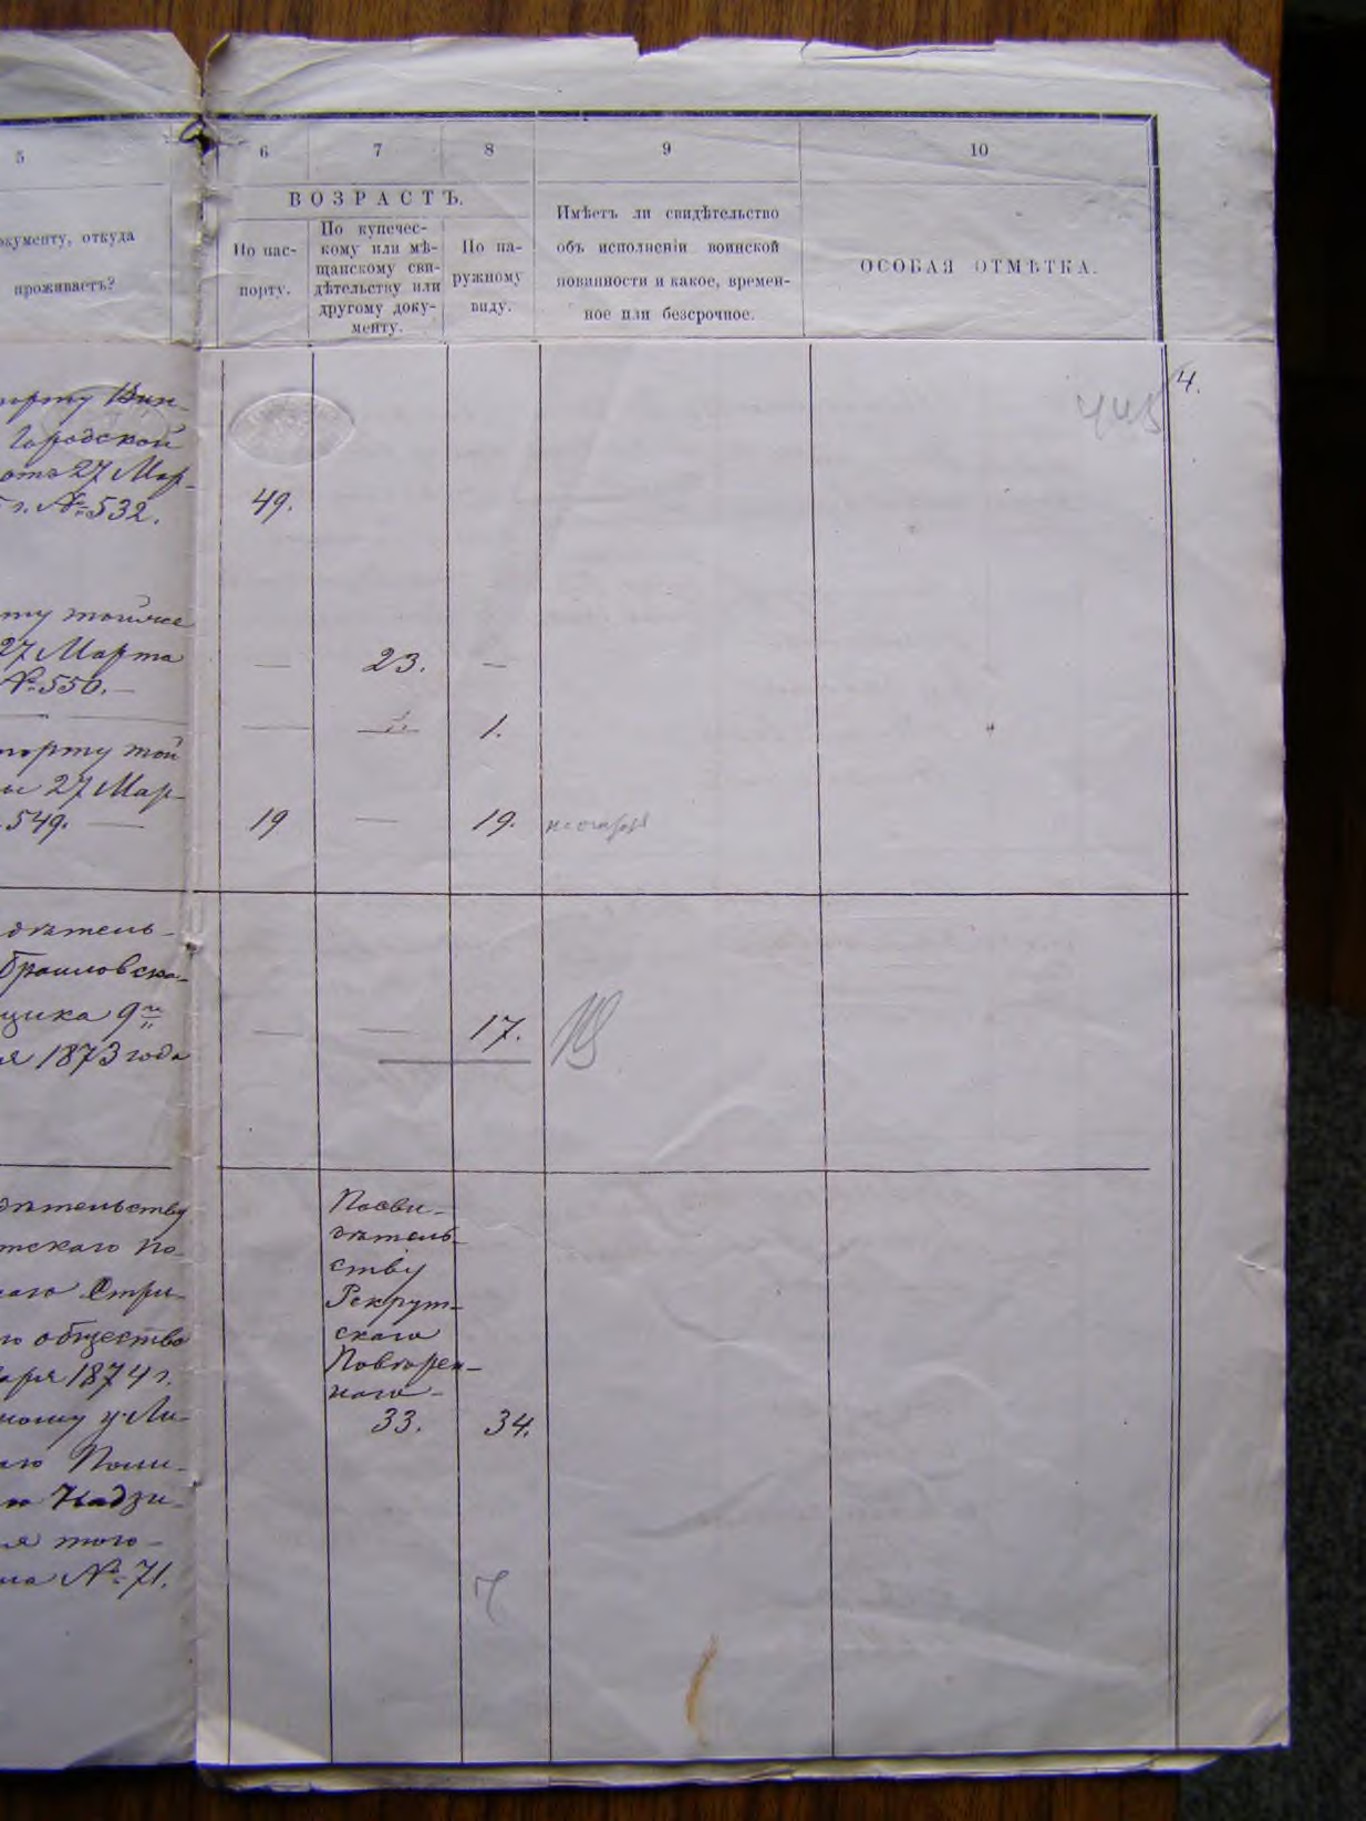 5
окументу, откуда
проживаетъ?
6
7
8
9
10
ВОЗРАСТЪ.
По пас-
порту.
По купечес-
кому или мѣ-
щанскому сви-
дѣтельству или
другому доку-
менту.
По на-
ружному
виду.
Имѣетъ ли свидѣтельство
объ исполненіи воинской
повинности и какое, времен-
ное или безсрочное.
ОСОБАЯ ОТМѢТКА.
4.
порту Вин-
Городской
отъ 27 Мар-
г. № 532.
49.
ту тойже
27 Марта
№ 550. —
— 23. —
— — 1.
порту той
27 Мар-
549. —
19 — 19.
дѣтель-
Браиловска-
щика 9го
я 1873 года
— — 17.
дѣтельству
тскаго По-
наго Стри-
го общество
аря 1874 г.
ному у Ли-
аго Поли-
го Надзи-
я того-
№ 71.
По сви-
дѣтель-
ству
Рекрут-
скаго
Повторен-
наго -
33. 34.